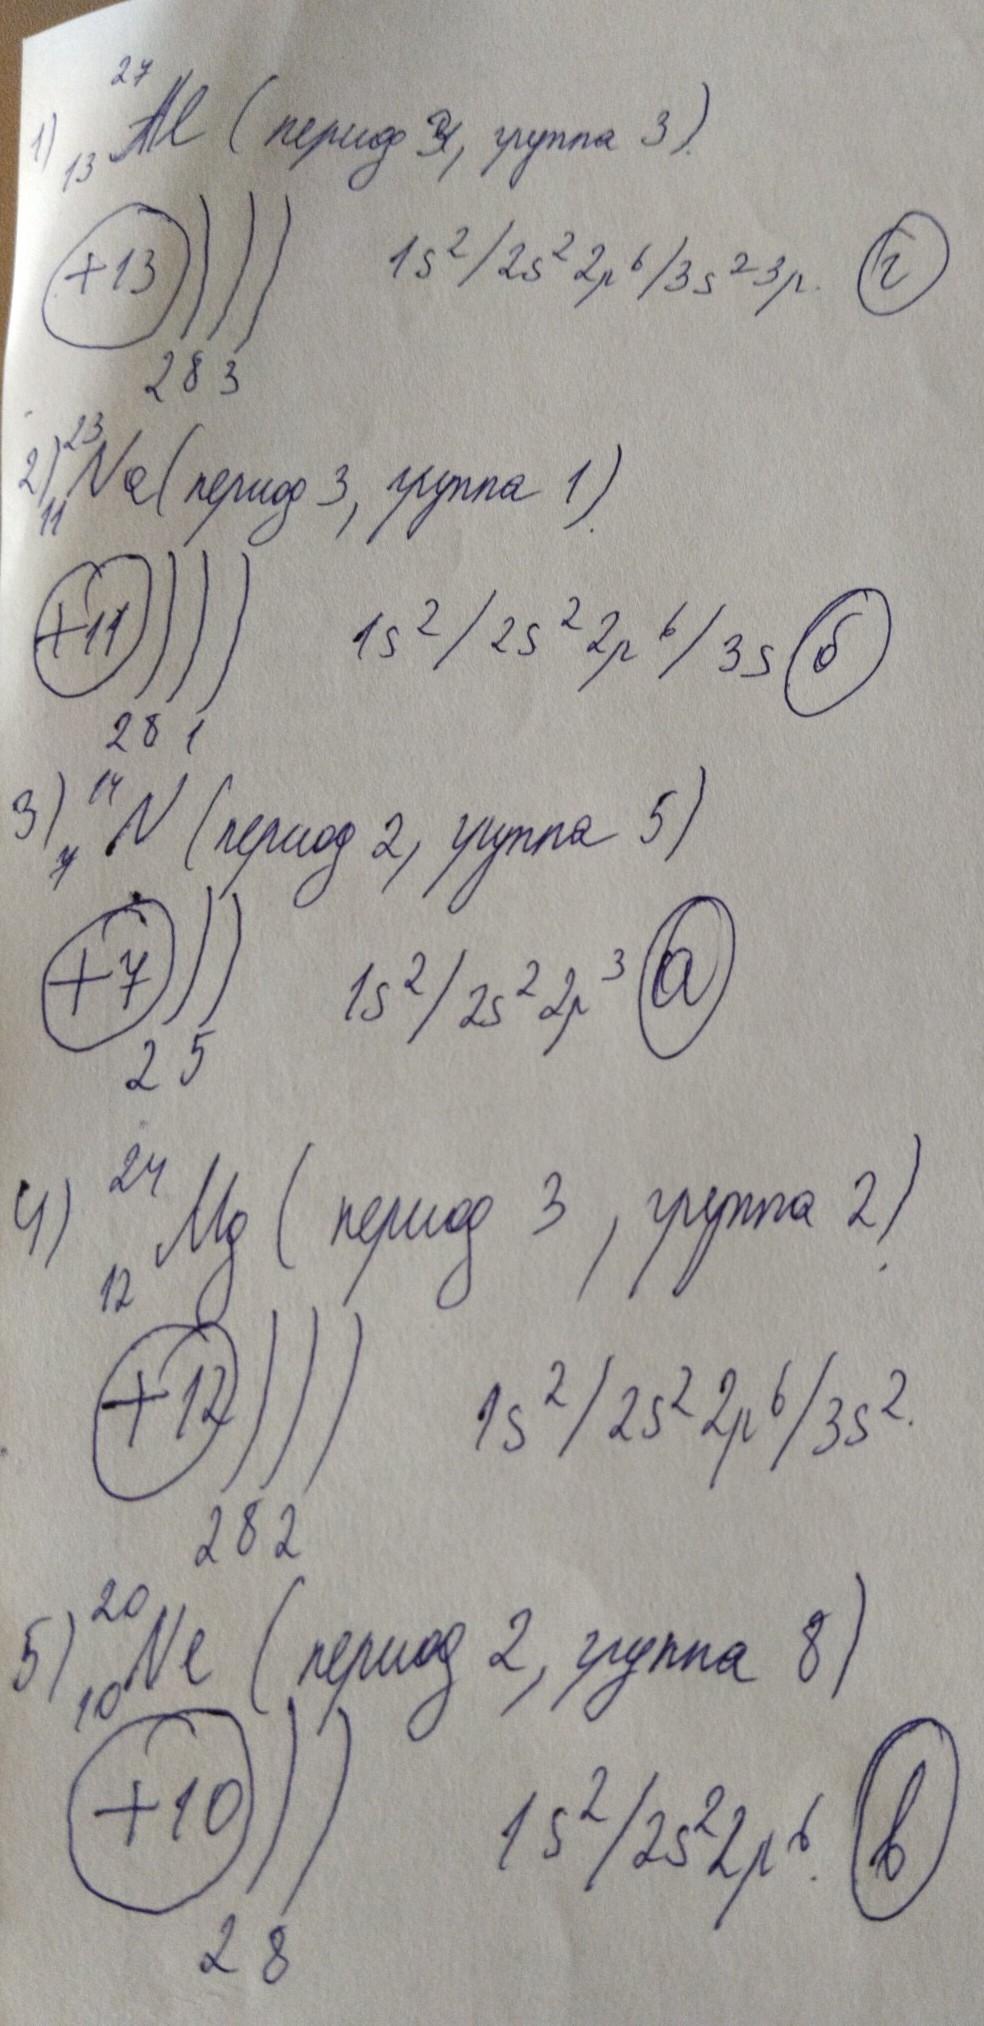 1) ²⁷₁₃Al (период 3, группа 3).
+13 ) ) ) 1s²/2s²2p⁶/3s²3p. г
2 8 3
2) ²³₁₁Na (период 3, группа 1).
+11 ) ) ) 1s²/2s²2p⁶/3s б
2 8 1
3) ¹⁴₇N (период 2, группа 5)
+7 ) ) 1s²/2s²2p³ а
2 5
4) ²⁴₁₂Mg (период 3, группа 2).
+12 ) ) ) 1s²/2s²2p⁶/3s².
2 8 2
5) ²⁰₁₀Ne (период 2, группа 8)
+10 ) ) 1s²/2s²2p⁶. в
2 8